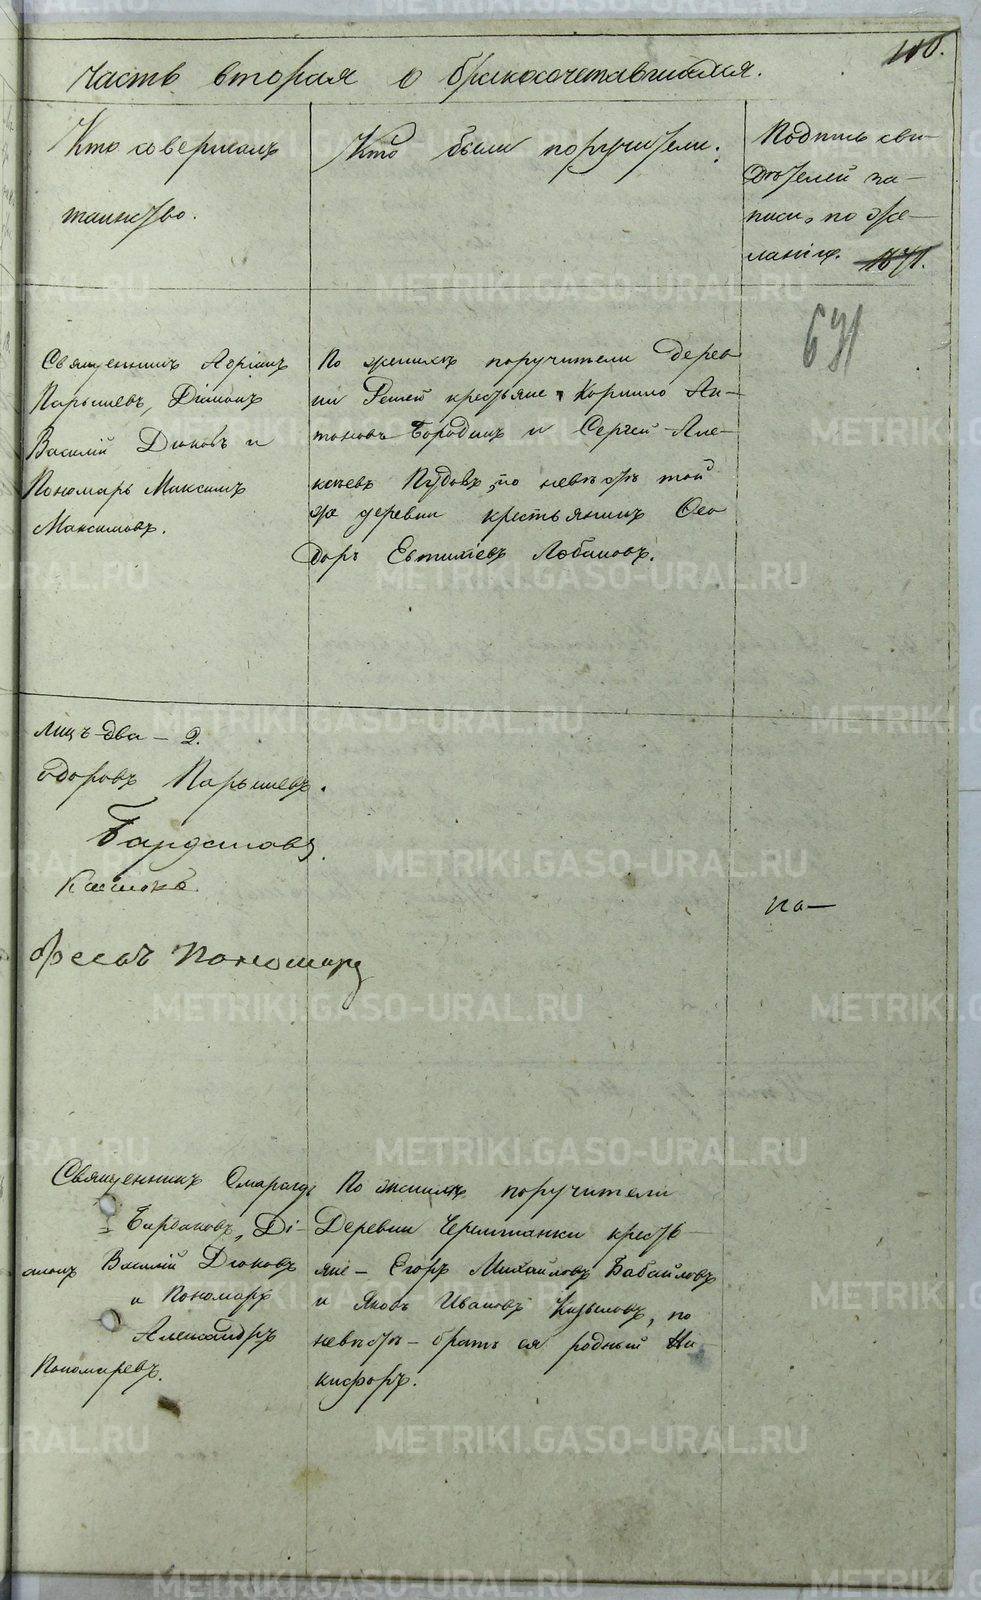 Часть вторая о бракосочетавшихся.
110.
Кто совершалъ
таинство.
Кто были поручители.
Подпись сви-
дѣтелей за-
писи, по же-
ланію. 1671.
691
Священникъ Адріанъ
Парышевъ, Діаконъ
Василій Дюковъ и
Пономарь Максимъ
Максимовъ.
По женихѣ поручители дерев
ни Решей крестьяне Корнило Ан-
тоновъ Бородинъ и Сергей Але-
ксѣевъ Пудовъ, по невѣстѣ той
же деревни крестьянинъ Ѳео
доръ Евтихіевъ Лобановъ.
лицъ два - 2.
одоровъ Парышевъ.
Кашковъ.
Пономарь
на-
Священникъ Смарагдъ
Бирдановъ, Ді-
аконъ Василій Дюковъ
и Пономарь
Александръ
Пономаревъ.
По женихѣ поручители
Деревни Черемшанки кресть-
яне - Егоръ Михайловъ Бабайловъ
и Яковъ Ивановъ, по
невѣстѣ - братъ ея родный Ни
кифоръ.
METRIKI.GASO-URAL.RU